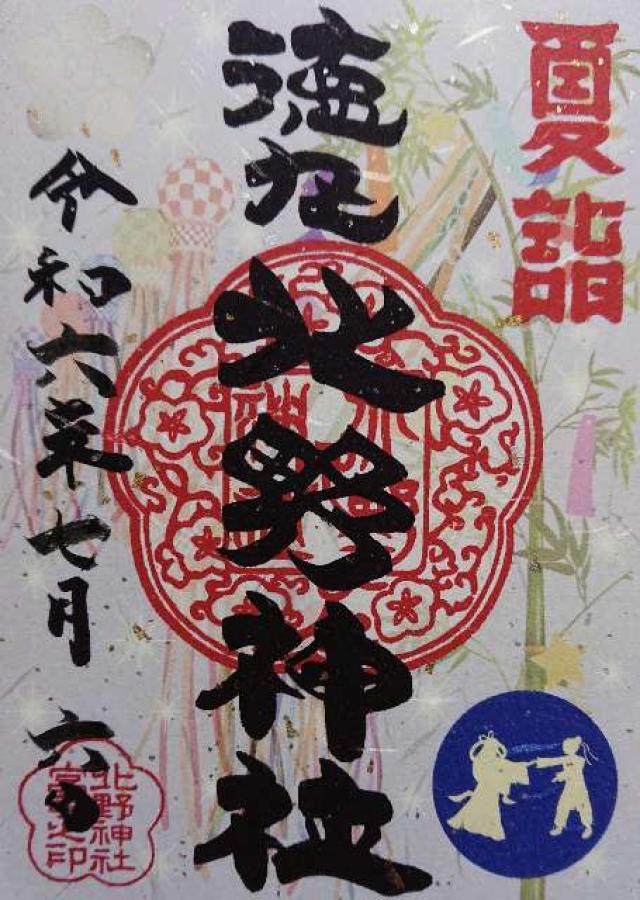 夏詣
徳丸
北野神社
令和六年七月六日
北野神社
宮司之印